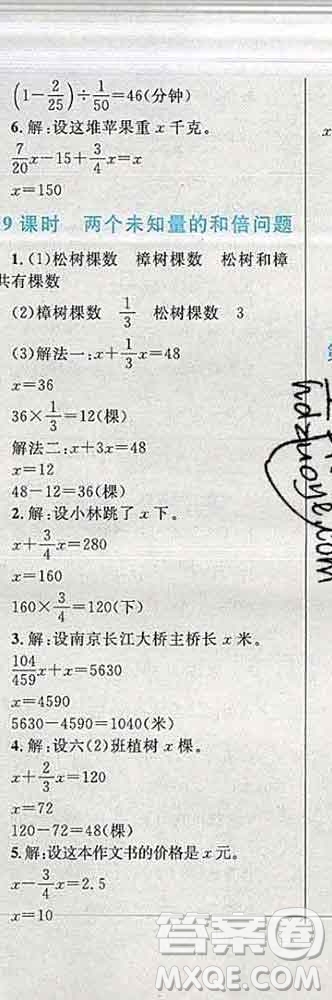 (1-2/25)÷1/50=46(分钟)
6.解:设这堆苹果重x千克。
7/20x-15+3/4x=x
x=150
9课时 两个未知量的和倍问题
1.(1)松树棵数 樟树棵数 松树和樟
共有棵数
(2)樟树棵数 1/3 松树棵数 3
(3)解法一:x+1/3x=48
x=36
36×1/3=12(棵)
解法二:x+3x=48
x=12
48-12=36(棵)
2.解:设小林跳了x下。
x+3/4x=280
x=160
160×3/4=120(下)
3.解:设南京长江大桥主桥长x米。
104/459x+x=5630
x=4590
5630-4590=1040(米)
4.解:设六(2)班植树x棵。
x+2/3x=120
x=72
120-72=48(棵)
5.解:设这本作文书的价格是x元。
x-3/4x=2.5
x=10
x
hdzuoye.com
答案圈
MXQE.COM